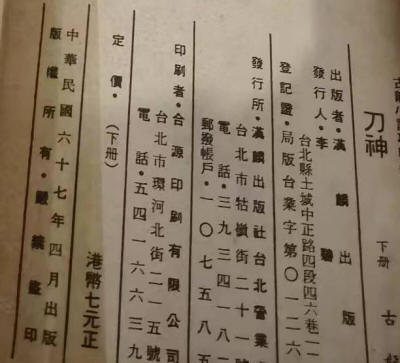 刀神
下册
古
出版者•漢麟出版
發行人•李
台北縣土城中正路四段四六巷二
登記證•局版台業字第〇一二六
發行所•漢麟出版社台北營業
台北市牯嶺街二十一號
電話•三九三四一八二
郵撥帳戶•一〇七五八五
印刷者•合源印刷有限公司
台北市環河北街二一五號
電話•五四一六六三九
定價•(下册)
港幣七元正
中華民國六十七年四月出版
版權所有•嚴禁盜印